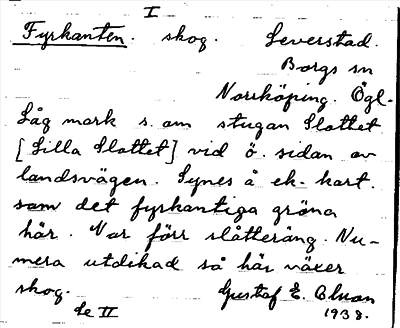 I
Fyrkanten. skog. Leverstad.
Borgs sn
Norrköping. Ögl.
Låg mark s. om stugan Slottet
[Lilla Slottet] vid ö. sidan av
landsvägen. Synes å ek. kart.
som det fyrkantiga gröna
här. Var förr slåtteräng. Nu-
mera utdikad så här växer
skog. Gustaf E.
Se II 1938.